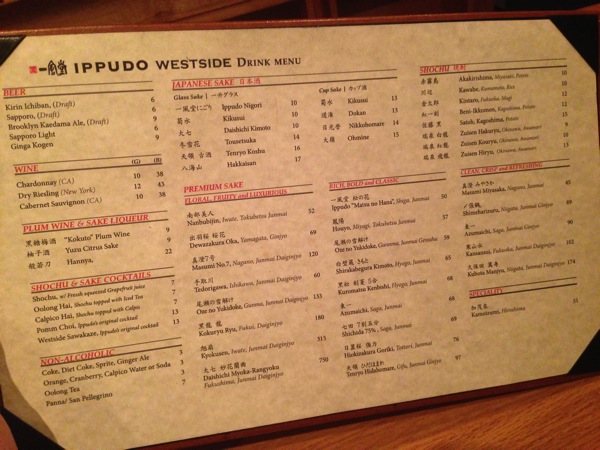 一風堂 IPPUDO WESTSIDE DRINK MENU
BEER
Kirin Ichiban, (Draft) 6
Sapporo, (Draft) 6
Brooklyn Kaedama Ale, (Draft) 9
Sapporo Light 6
Ginga Kogen 9
WINE (G) (B)
Chardonnay (CA) 10 38
Dry Riesling (New York) 12 43
Cabernet Sauvignon (CA) 10 38
PLUM WINE & SAKE LIQUEUR
黒糖梅酒 "Kokuto" Plum Wine 9
柚子酒 Yuzu Citrus Sake 9
般若刀 Hannya, 22
SHOCHU & SAKE COCKTAILS
Shochu, w/ Fresh squeezed Grapefruit juice 7
Oolong Hai, Shochu topped with Iced Tea 7
Calpico Hai, Shochu topped with Calpis 13
Pomm Choi, Ippudo's original cocktail 13
Westside Sawakaze, Ippudo's original cocktail 13
NON-ALCOHOLIC
Coke, Diet Coke, Sprite, Ginger Ale 3
Orange, Cranberry, Calpico Water or Soda 3
Oolong Tea 2
Panna/ San Pellegrino 7
JAPANESE SAKE 日本酒
Glass Sake | 一升グラス
一風堂にごり Ippudo Nigori 10
菊水 Kikusui 10
大七 Daishichi Kimoto 10
冬雪花 Tousetsuka 14
天領 古酒 Tenryo Koshu 14
八海山 Hakkaisan 17
Cup Sake | カップ酒
菊水 Kikusui 13
道灌 Dokan 13
日光誉 Nikkohomare 14
大嶺 Ohmine 15
PREMIUM SAKE
FLORAL, FRUITY and LUXURIOUS
南部美人
Nanbubijin, Iwate, Tokubetsu Junmai 52
出羽桜 桜花
Dewazakura Oka, Yamagata, Ginjyo 69
真澄7号
Masumi No.7, Nagano, Junmai Daiginjyo 120
手取川
Tedorigawa, Ishikawa, Junmai Daiginjyo 126
尾瀬の雪解け
Oze no Yukidoke, Gunma, Junmai Daiginjyo 133
黒龍 龍
Kokuryu Ryu, Fukui, Daiginjyo 180
旭扇
Kyokusen, Iwate, Junmai Daiginjyo 315
大七 妙花蘭曲
Daishichi Myoka-Rangyoku 750
Fukushima, Junmai Daiginjyo
RICH, BOLD and CLASSIC
Ippudo "Matsu no Hana", Shiga, Junmai 50
鳳陽
Houyo, Miyagi, Tokubetsu Junmai 57
尾瀬の雪解け
Oze no Yukidoke, Gunma, Junmai Genshu 58
Shirakabegura Kimoto, Hyogo, Junmai
Kurumatsu Kenbishi, Hyogo, Junmai
東一
Azumaichi, Saga, Junmai
Shichida 75%, Saga, Junmai
日置桜
Hiokizakura Goriki, Tottori, Junmai
天領 ひだほまれ
Tenryo Hidahomare, Gifu, Junmai Ginjyo 97
SHOCHU 焼酎
赤霧島 Akakirishima, Miyazaki, Potato 10
川辺 Kawabe, Kumamoto, Rice 10
金太郎 Kintaro, Fukuoka, Mugi 12
紅一刻 Beni-Ikkomon, Kagoshima, Potato 12
佐藤 黒 Satoh, Kagoshima, Potato 15
瑞泉 白龍 Zuisen Hakuryu, Okinawa, Awamori 9
瑞泉 黄龍 Zuisen Kouryu, Okinawa, Awamori
瑞泉 飛龍 Zuisen Hiryu, Okinawa, Awamori 13
CLEAN, CRISP and REFRESHING
真澄 みやさか
Masumi Miyasaka, Nagano, Junmai 45
〆張鶴
Shimeharizuru, Niigata, Junmai Ginjyo
東一
Azumaichi, Saga, Junmai Ginjyo
寒山水
Kansansui, Fukuoka, Junmai Daiginjyo 102
久保田 萬寿
Kubota Manjyu, Niigata, Junmai Daiginjyo 174
SPECIALTY
加茂鶴
Kamotsuru, Hiroshima 51